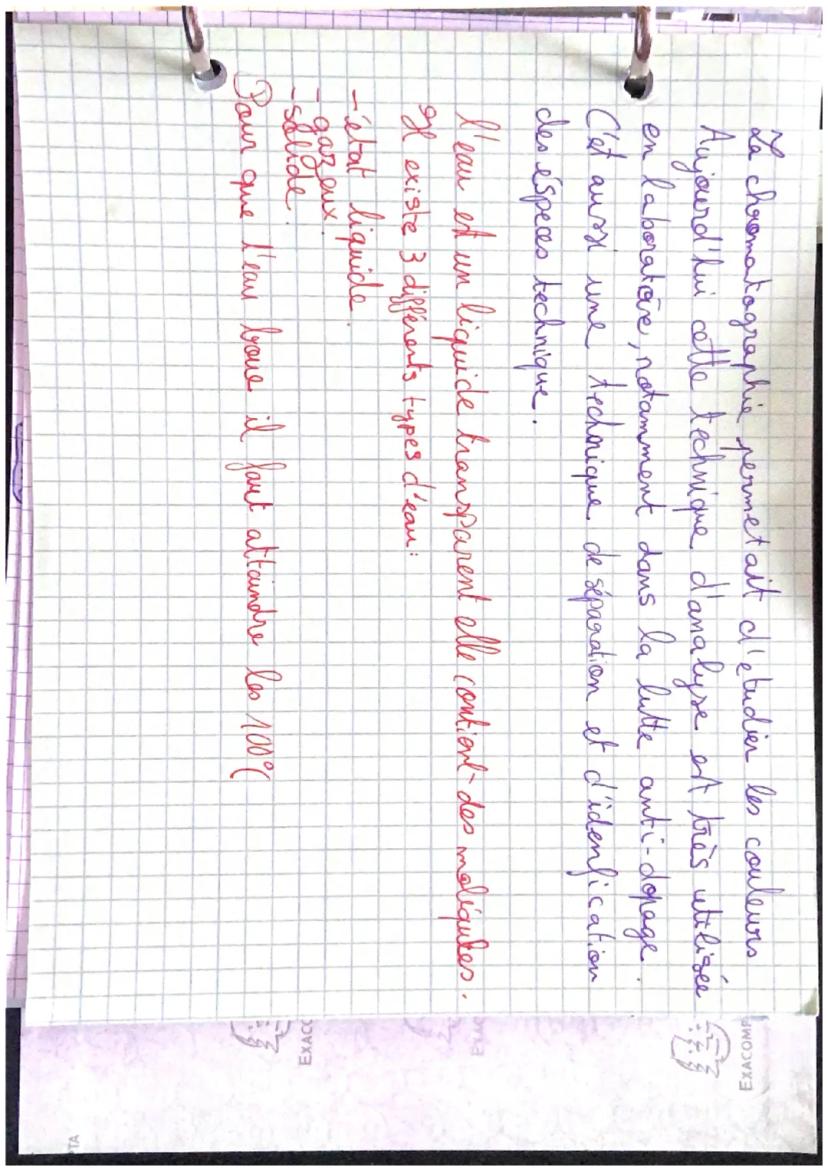 La chromatographie permetait d'étudier les couleurs
Aujourd'hui cette technique d'analyse est très utilisée
en laboratoire, notamment dans la lutte anti-dopage.
C'est aussi une technique de séparation et d'idenfication
des éspèces technique.
l'eau est un liquide transparent elle contient des moliqules.
Il existe 3 différents types d'eau:
-état liquide.
-gazeux.
-solide.
Pour que l'eau boue il faut attaindre les 100°C
EXACOMP
EXACO
EXAC
TA